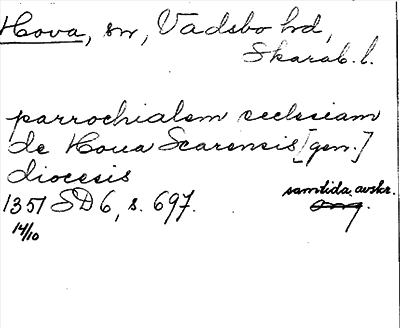 Hova, sn, Vadsbo hd,
Skarab. l.
parrochialem ecclesiam
de Houa Scarensis [gen.]
diocesis
1351 SD 6, s. 697. samtida avskr.
14/10 orig.